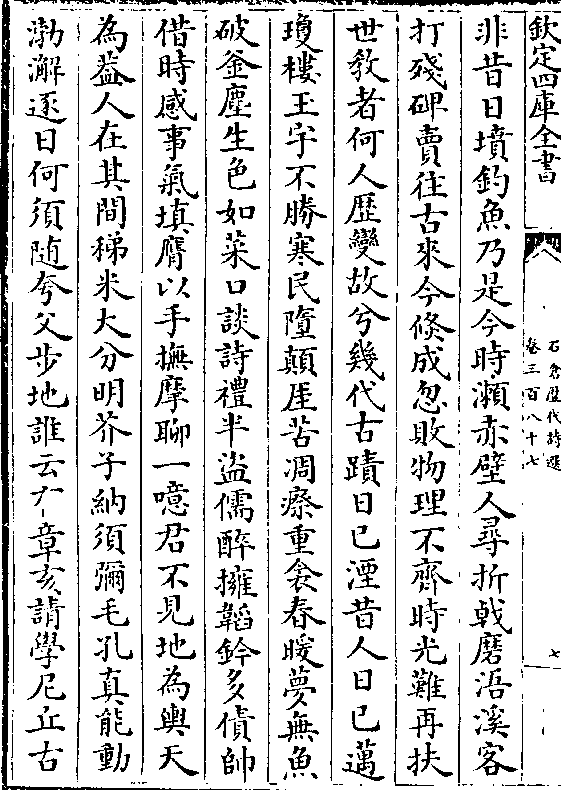 欽定四庫全書
石倉歷代詩選
卷三百八十七
七
非昔日墳釣魚乃是今時瀨赤壁人尋折戟磨浯溪客
打殘碑賣往古來今倐成忽敗物理不齊時光難再扶
世敎者何人歴變故兮幾代古蹟日已湮昔人日已邁
瓊樓玉宇不勝寒民墮顛厓苦凋瘵重衾春暖夢無魚
破釜塵生色如菜口談詩禮半盜儒醉擁韜鈐多債帥
借時感事氣填膺以手撫摩聊一噫君不見地為輿天
為葢人在其間稊米大分明芥子納須彌毛孔真能動
渤澥逐日何須隨夸父步地誰云章亥請學尼丘古